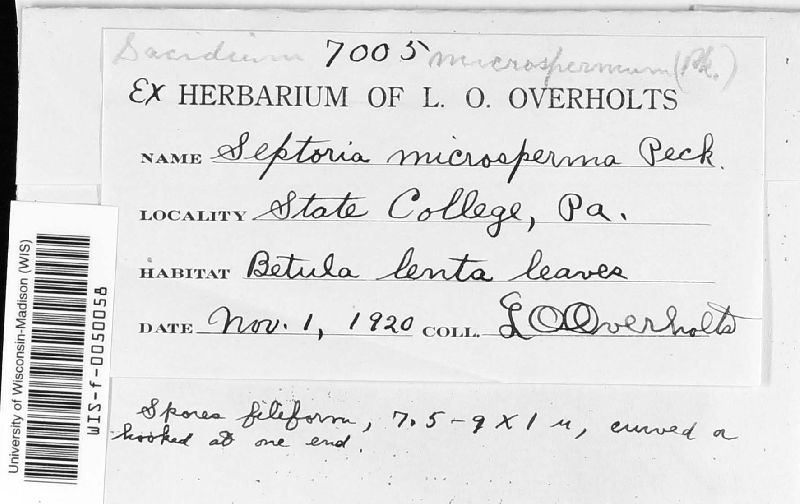 Sacidium 7005 microspermum (Pk.)
Ex HERBARIUM OF L. O. OVERHOLTS
NAME Septoria microsperma Peck.
LOCALITY State College, Pa.
HABITAT Betula lenta leaves
DATE Nov. 1, 1920 COLL. L O Overholts
Spores filiform, 7.5-9 X 1 u, curved or
hooked at one end.
University of Wisconsin-Madison (WIS)
WIS-f-0050058